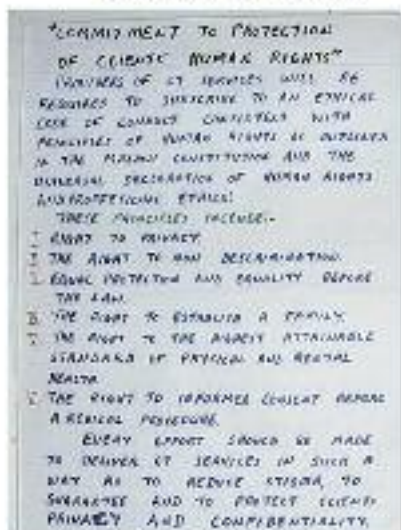 "COMMITMENT TO PROTECTION
OF CLIENTS HUMAN RIGHTS"
PROVIDERS OF CT SERVICES WILL BE
REQUIRED TO SUBSCRIBE TO AN ETHICAL
CODE OF CONDUCT CONSISTENT WITH
PRINCIPLES OF HUMAN RIGHTS AS OUTLINED
IN THE CONSTITUTION AND THE
UNIVERSAL DECLARATION OF HUMAN RIGHTS
AND PROFESSIONAL ETHICS.
THESE PRINCIPLES INCLUDE:-
RIGHT TO PRIVACY.
THE RIGHT TO NON DISCRIMINATION.
EQUAL PROTECTION AND EQUALITY BEFORE
THE LAW.
THE RIGHT TO ESTABLISH A FAMILY.
THE RIGHT TO THE HIGHEST ATTAINABLE
STANDARD OF PHYSICAL AND MENTAL
HEALTH.
THE RIGHT TO INFORMED CONSENT BEFORE
A MEDICAL PROCEDURE.
EVERY EFFORT SHOULD BE MADE
TO DELIVER CT SERVICES IN SUCH A
WAY AS TO REDUCE STIGMA, TO
GUARANTEE AND TO PROTECT CLIENTS
PRIVACY AND CONFIDENTIALITY.